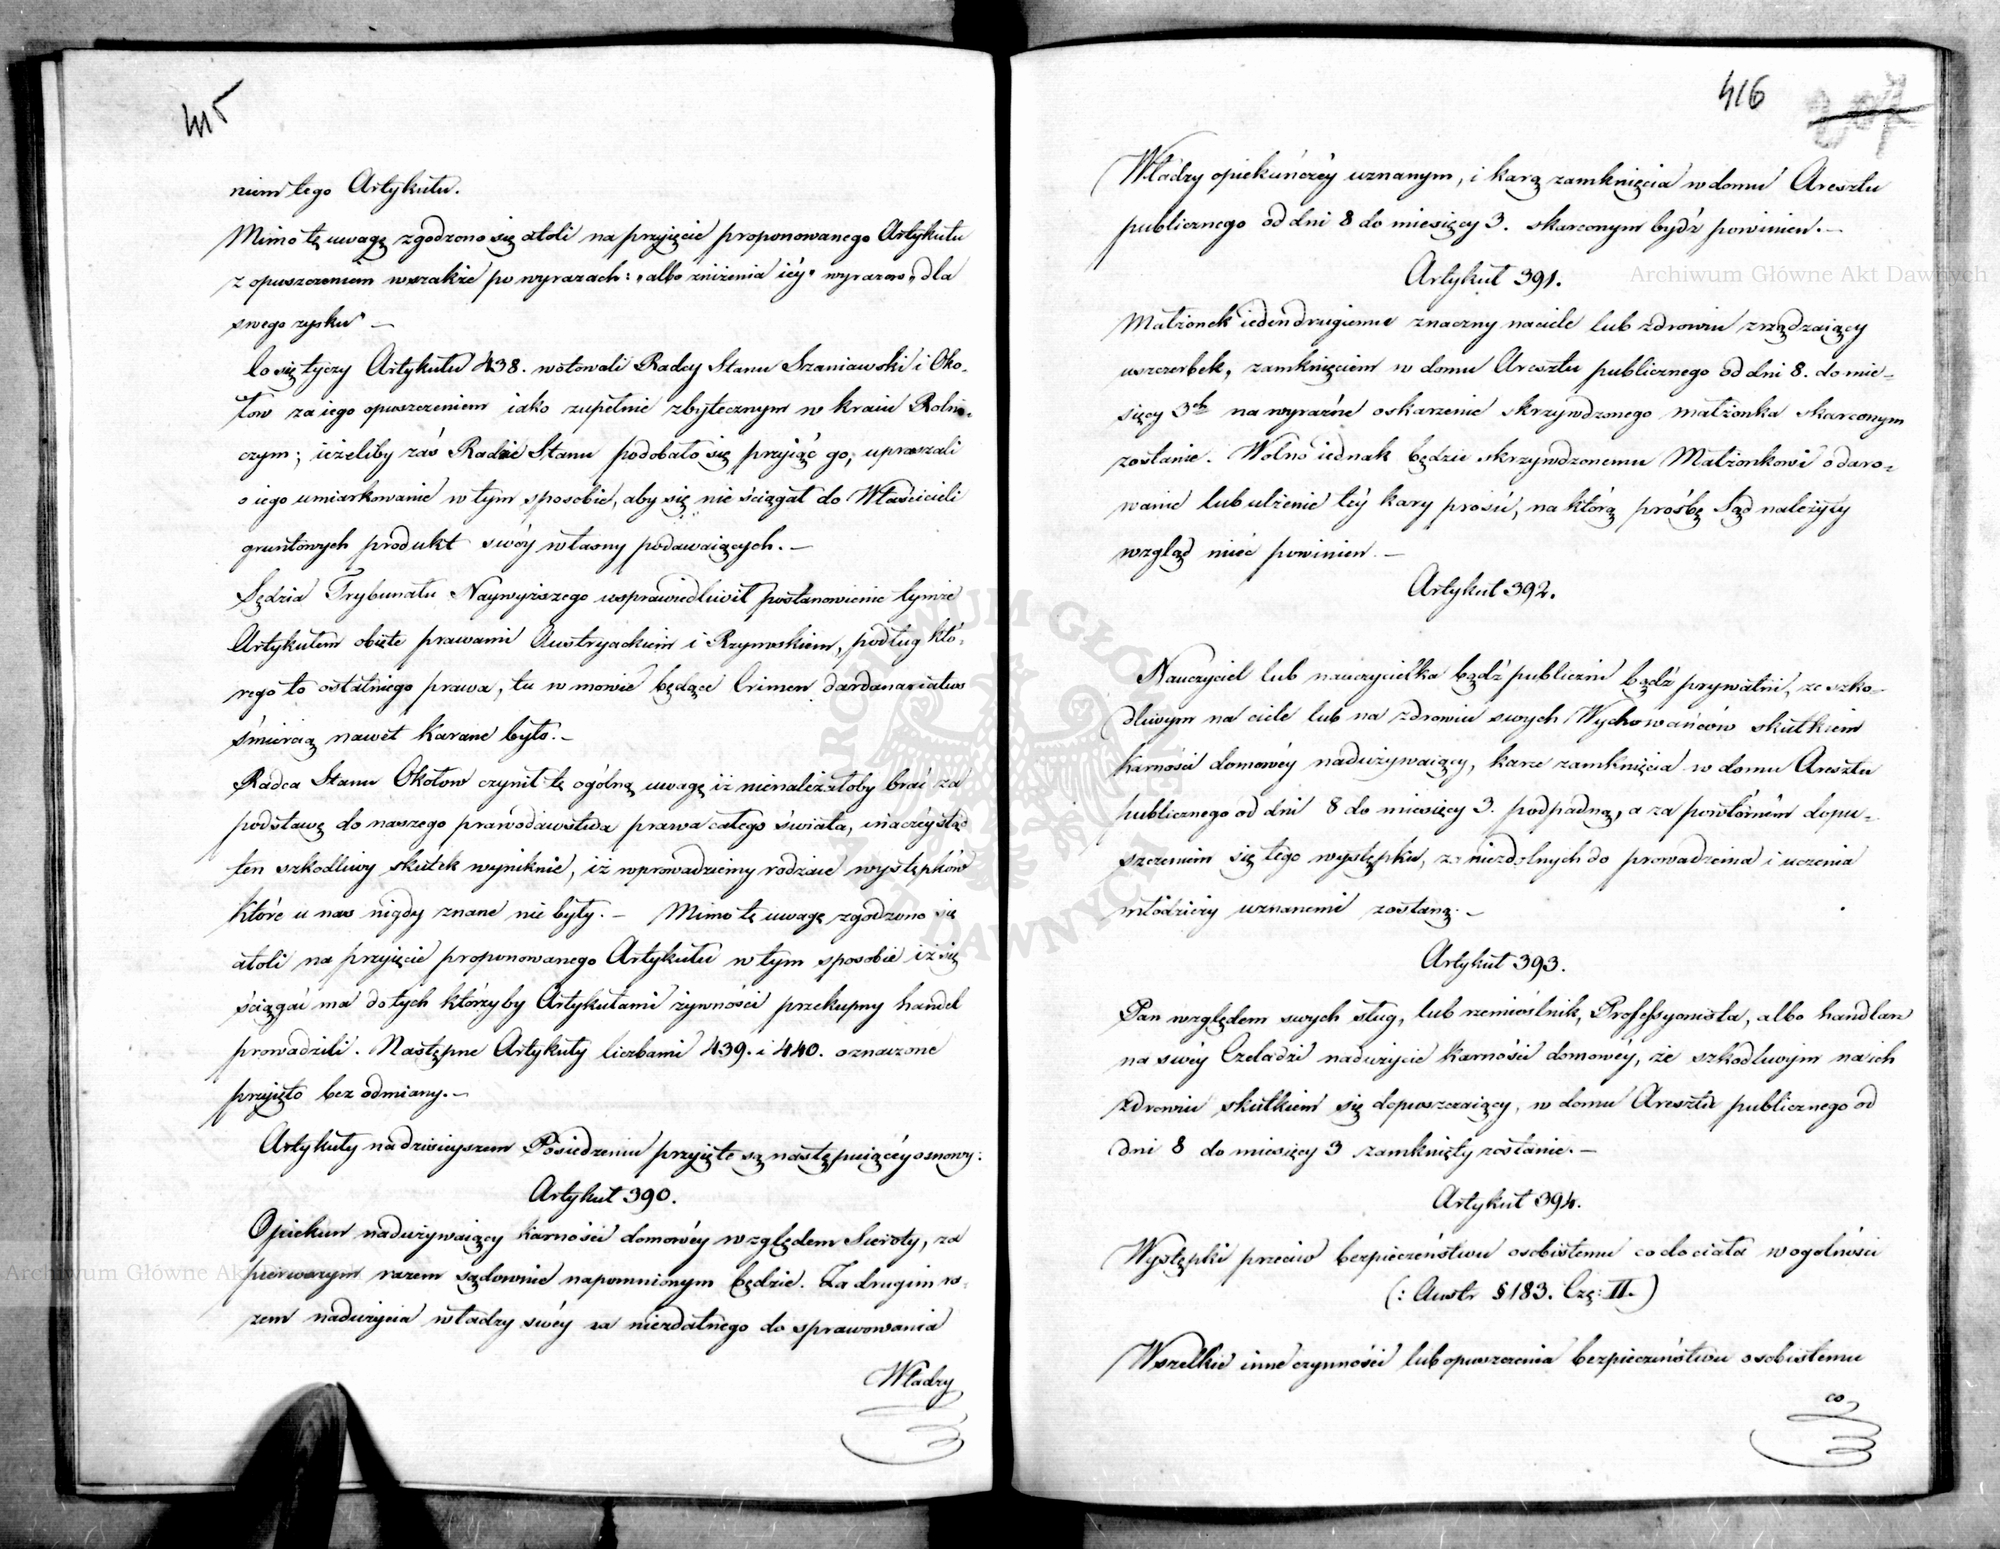 415
niem tego Artykułu.
Mimo tę uwagę zgodzono się atoli na przyjęcie proponowanego Artykułu
z opuszczeniem wszakże po wyrazach: „albo zniżenia iéy" wyrazów „dla
swego zysku" —
Co się tyczy Artykułu 438. wotowali Radcy Stanu Szaniawski i Oko-
łow za iego opuszczeniem iako zupełnie zbytecznym w kraiu Rolni-
czym; ieżeliby zaś Radzie Stanu podobało się przyiąć go, upraszali
o iego umiarkowanie w tym sposobie, aby się nie ściągał do Właścicieli
gruntowych produkt swóy własny podawaiących. —
Sędzia Trybunału Naywyższego usprawiedliwił postanowienie tymże
Artykułem obięte prawami Austryackiem i Rzymskiem, podług któ-
rego to ostatniego prawa, tu w mowie będące Crimen dardanariatus
śmiercią nawet karane było. —
Radca Stanu Okołow czynił tę ogólną uwagę iż nienależałoby brać za
podstawę do naszego prawodawstwa prawa całego świata, inaczéy stąd
ten szkodliwy skutek wyniknie, iż wprowadziemy rodzaie występków
które u nas nigdy znane nie były. — Mimo tę uwagę zgodzono się
atoli na przyięcie proponowanego Artykułu w tym sposobie iż się
ściągać ma do tych którzyby Artykułami żywności przekupny handel
prowadzili. Następne Artykuły liczbami 439. i 440. oznaczone
przyięto bez odmiany. —
Artykuły na dzisieyszem Posiedzeniu przyięte są następuiącéy osnowy:
Artykuł 390.
Opiekun nadużywaiący karności domowéy względem Sieroty, za
pierwszym razem sądownie napomnionym będzie. Za drugim ra-
zem nadużycia władzy swéy za niezdatnego do sprawowania
Władzy
416
207
Władzy opiekuńczéy uznanym, i karą zamknięcia w domu Aresztu
publicznego od dni 8 do miesięcy 3. skarconym bydź powinien. —
Artykuł 391.
Małżonek ieden drugiemu znaczny na ciele lub zdrowiu zrządzaiący
uszczerbek, zamknięciem w domu Aresztu publicznego od dni 8. do mie-
sięcy 3ch na wyraźne oskarzenie skrzywdzonego małżonka skarconym
zostanie. Wolno iednak będzie skrzywdzonemu Małżonkowi o daro-
wanie lub ulżenie téy kary prosić, na którą prośbę Sąd należyty
wzgląd mieć powinien. —
Artykuł 392.
Nauczyciel lub nauczycielka bądź publiczni bądź prywatni, ze szko-
dliwym na ciele lub na zdrowiu swych Wychowańców skutkiem
karności domowéy nadużywaiący, karze zamknięcia w domu Aresztu
publicznego od dni 8 do miesięcy 3. podpadną, a za powtórném dopu-
szczeniem się tego występku, za niezdolnych do prowadzenia i uczenia
młodzieży uznanemi zostaną. —
Artykuł 393.
Pan względem swych sług, lub rzemieślnik, Professyonista, albo handlarz
na swéy Czeladzi nadużycie karności domowéy, ze szkodliwym na ich
zdrowiu skutkiem się dopuszczaiący, w domu Aresztu publicznego od
dni 8 do miesięcy 3 zamknięty zostanie. —
Artykuł 394.
Występki przeciw bezpieczeństwu osobistemu co do ciała w ogolności
(: Austr § 183. Czę: II.)
Wszelkie inne czynności lub opuszczenia bezpieczeństwu osobistemu
co
Archiwum Główne Akt Dawnych
Archiwum Główne Akt Dawnych
ARCHIWUM GŁÓWNE AKT DAWNYCH